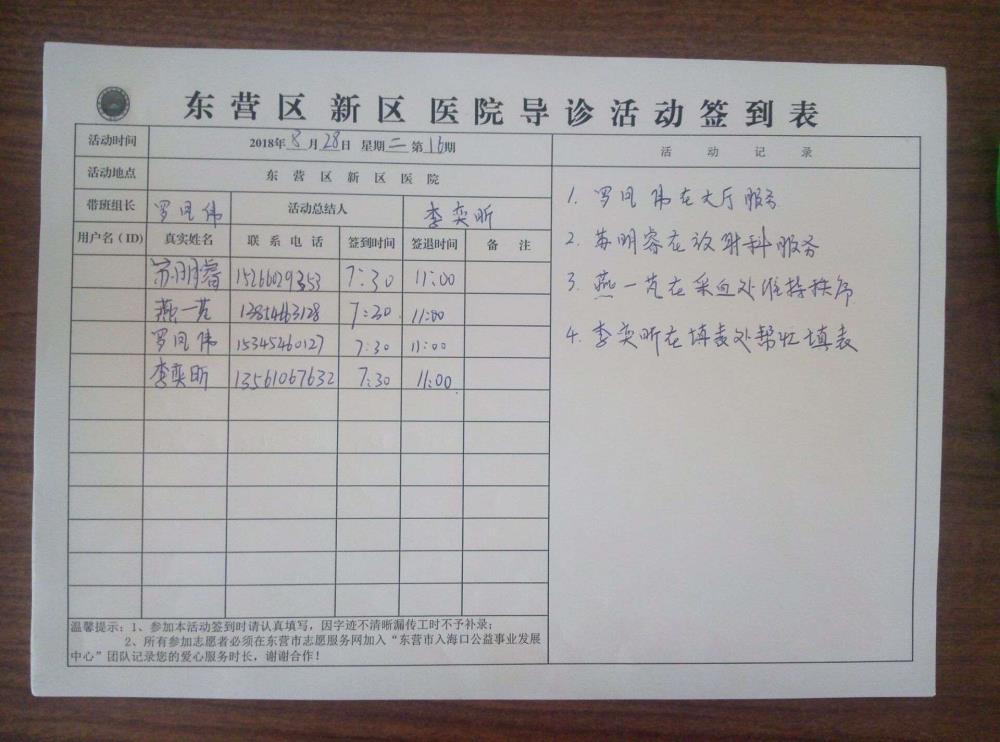 东营区新区医院导诊活动签到表
活动时间 2018年8月28日 星期二 第16期
活动地点 东营区新区医院
带班组长 罗凤伟 活动总结人 李奕昕
用户名(ID) 真实姓名 联系电话 签到时间 签退时间 备注
苏明睿 15266029353 7:30 11:00
燕一芃 7:30 11:00
罗凤伟 15345460127 7:30 11:00
李奕昕 13561067632 7:30 11:00
温馨提示：1、参加本活动签到时请认真填写，因字迹不清晰漏传工时不予补录；
2、所有参加志愿者必须在东营市志愿服务网加入“东营市入海口公益事业发展
中心”团队记录您的爱心服务时长，谢谢合作！
活动记录
1. 罗凤伟在大厅服务
2. 苏明睿在放射科服务
3. 燕一芃在采血处维持秩序
4. 李奕昕在填表处帮忙填表